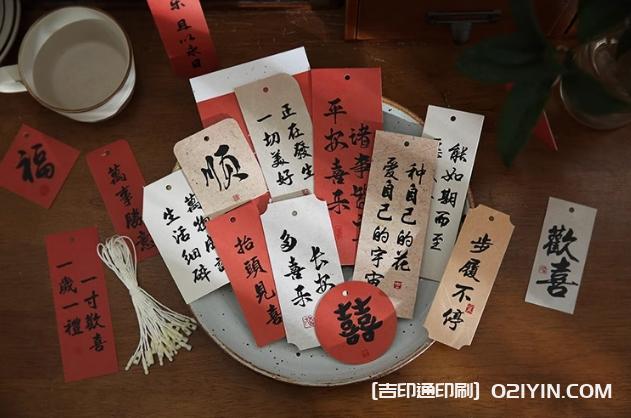 樂且以永日
福
萬事勝意
一歲一禮
一寸歡喜
順
一切美好
正在發生
平安喜乐
諸事皆
生活細碎
萬物
抬頭見喜
长安
多喜乐
种自己的花
爱自己的宇宙
能如期而至
步履不停
歡喜
囍
[吉印通印刷] 021YIN.COM